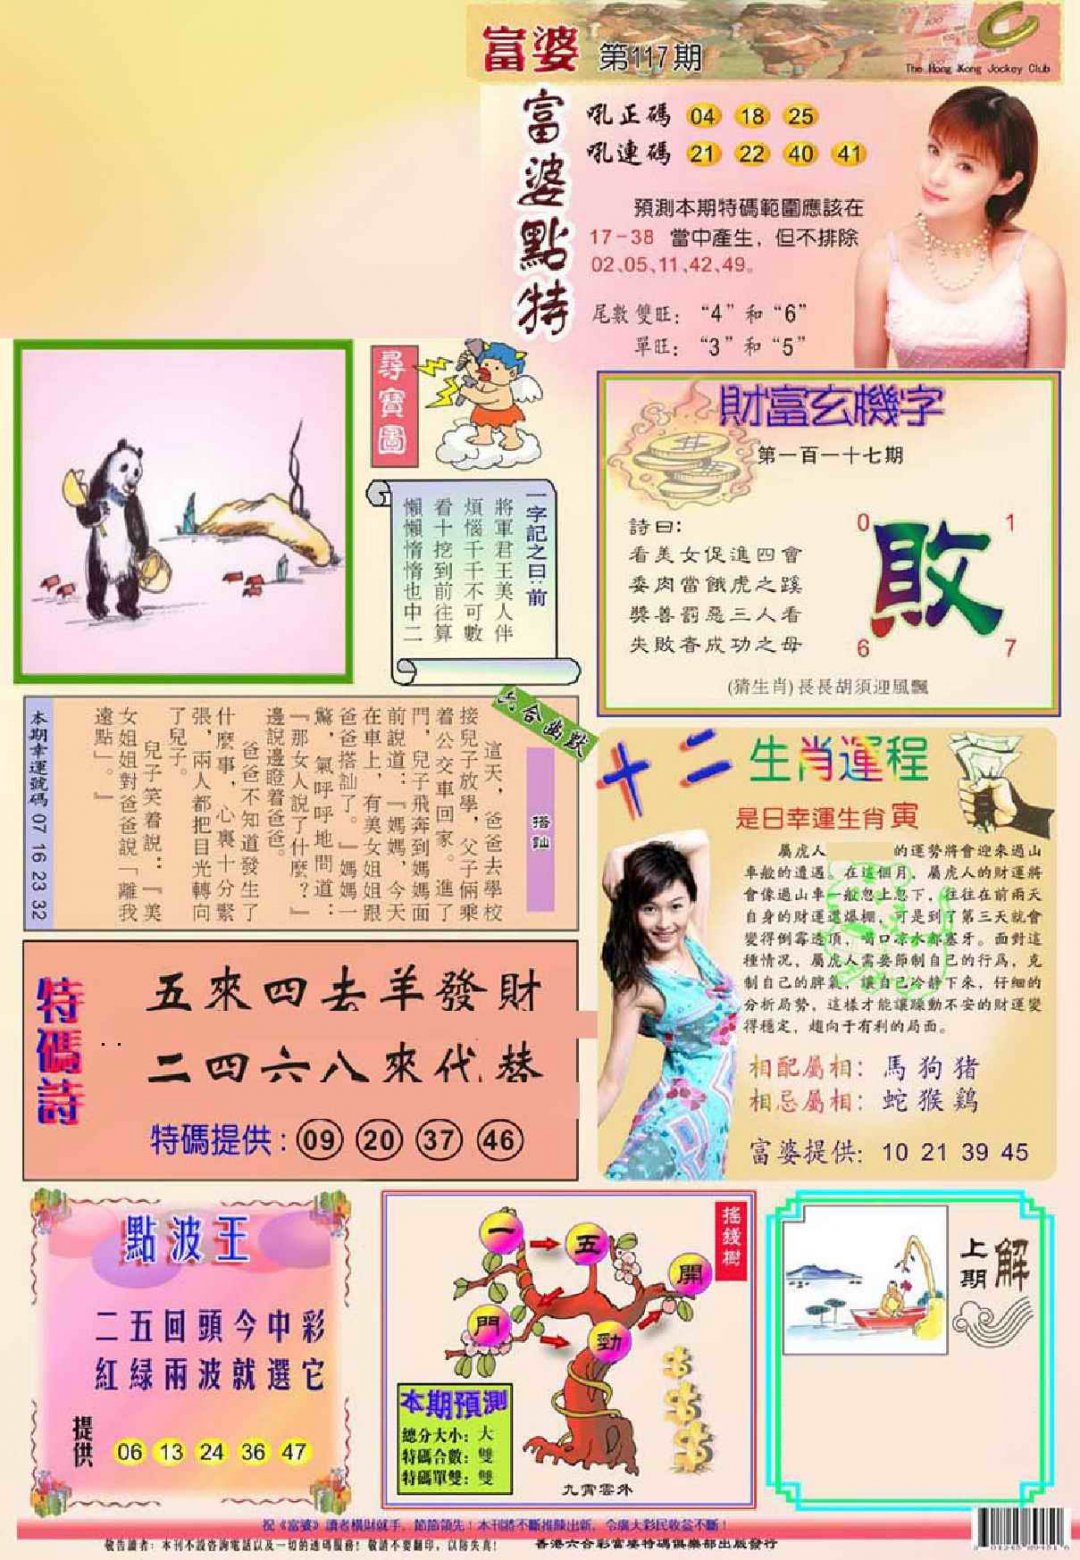 富婆 第117期
The Hong Kong Jockey Club
富婆點特
吼正碼 04 18 25
吼連碼 21 22 40 41
預測本期特碼範圍應該在
17-38 當中產生，但不排除
02、05、11、42、49。
尾數雙旺：“4”和“6”
單旺：“3”和“5”
尋寶圖
一字記之曰：前
將軍君王美人伴
煩惱千千不可數
看十挖到前往算
懶懶惰惰也中二
財富玄機字
第一百一十七期
詩曰：
看美女促進四會
委肉當餓虎之蹊
獎善罰惡三人看
失敗吝成功之母
0 1
敗
6 7
(猜生肖)長長胡須迎風飄
六合幽默
搭訕
這天，爸爸去學校
接兒子放學，父子倆乘
着公交車回家。進了
門，兒子飛奔到媽媽面
前說道：『媽媽，今天
在車上，有美女姐姐跟
爸爸搭訕了。』媽媽一
驚，氣呼呼地問道：
『那女人說了什麼？』
邊說邊瞪着爸爸。
爸爸不知道發生了
什麼事，心裏十分緊
張，兩人都把目光轉向
了兒子。
兒子笑着說：『美
女姐姐對爸爸說「離我
遠點」。』
本期幸運號碼 07 16 23 32
十二生肖運程
是日幸運生肖寅
屬虎人 的運勢將會迎來過山
車般的遭遇。在這個月，屬虎人的財運將
會像過山車一般忽上忽下，往往在前兩天
自身的財運還爆棚，可是到了第三天就會
變得倒霉透頂，喝口凉水都塞牙。面對這
種情况，屬虎人需要節制自己的行爲，克
制自己的脾氣，讓自己冷静下來，仔細的
分析局勢，這樣才能讓躁動不安的財運變
得穩定，趨向于有利的局面。
相配屬相：馬狗猪
相忌屬相：蛇猴鷄
富婆提供：10 21 39 45
特碼詩
五來四去羊發財
二四六八來代替
特碼提供：09 20 37 46
點波王
二五回頭今中彩
紅緑兩波就選它
提供 06 13 24 36 47
搖錢樹
一 五 開
門 勁
本期預測
總分大小：大
特碼合數：雙
特碼單雙：雙
九霄雲外
上期 解
祝《富婆》讀者橫財就手，節節領先！本刊將不斷推陳出新，令廣大彩民收益不斷！
敬告讀者：本刊不設咨詢電話以及一切的透碼服務！敬請不要翻印，以防失真！ 香港六合彩富婆特碼俱樂部出版發行